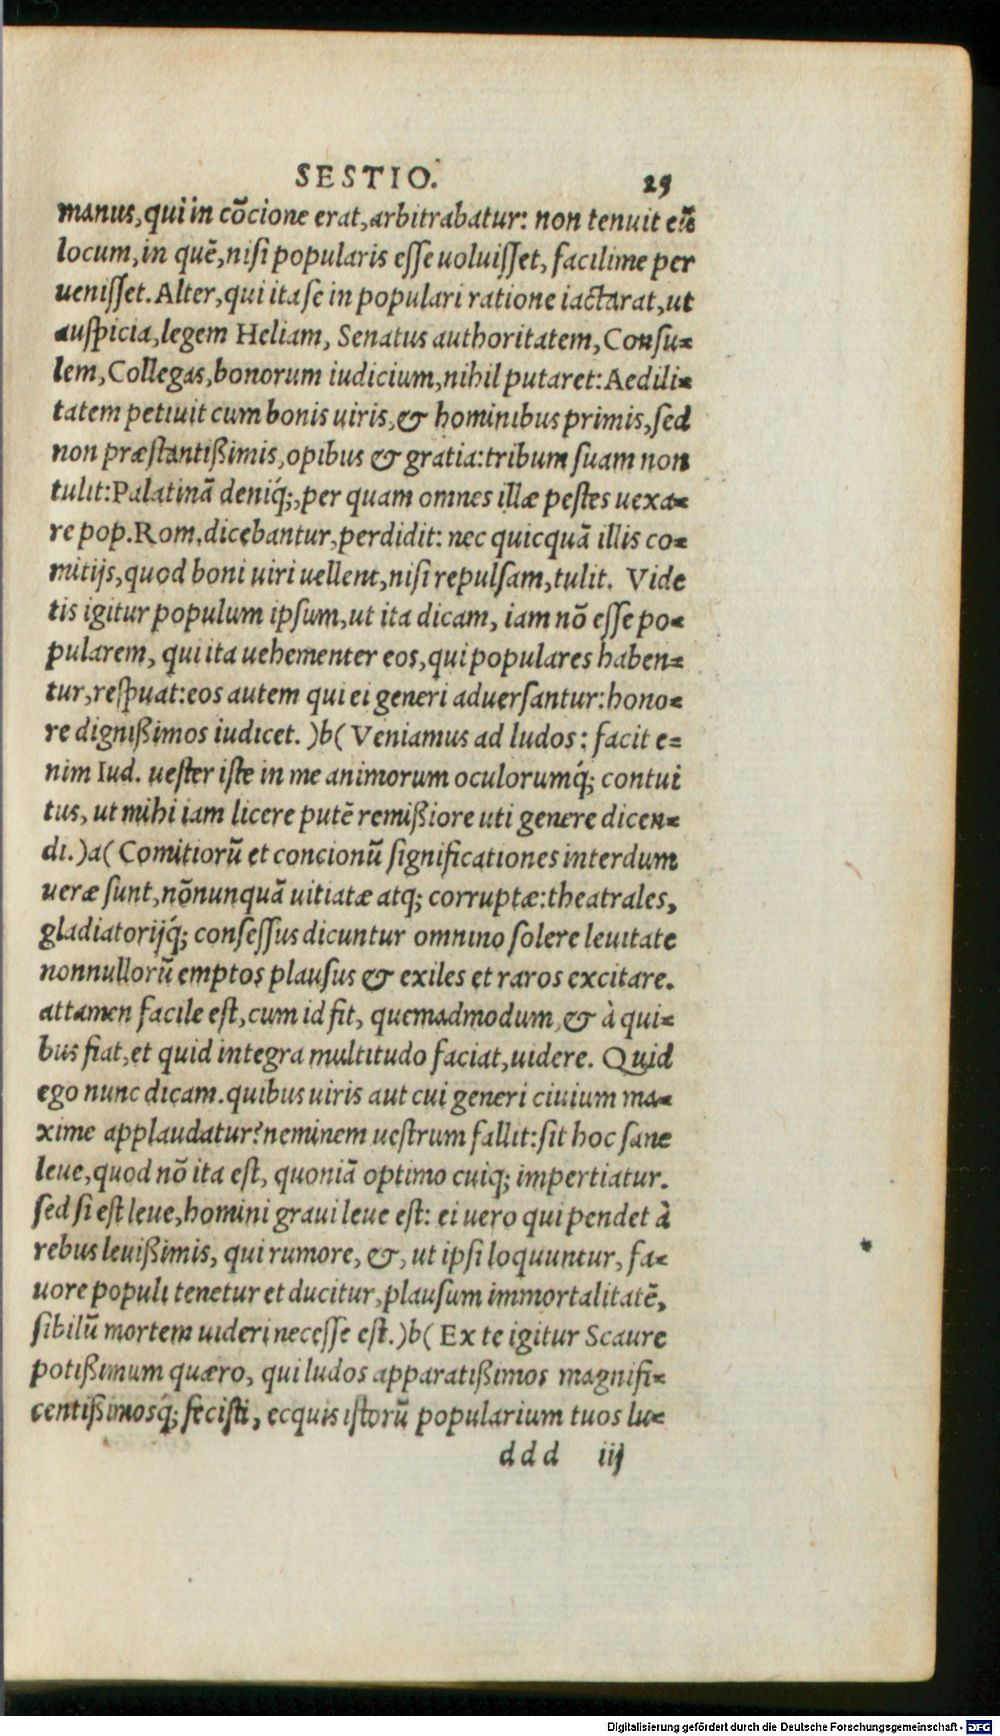 SESTIO. 25
manus, qui in cōcione erat, arbitrabatur: non tenuit eū
locum, in quē, nisi popularis esse uoluisset, facilime per
uenisset. Alter, qui ita se in populari ratione iactarat, ut
auspicia, legem Heliam, Senatus authoritatem, Consu-
lem, Collegas, bonorum iudicium, nihil putaret: Aedili-
tatem petiuit cum bonis uiris, & hominibus primis, sed
non præstantißimis, opibus & gratia: tribum suam non
tulit: Palatinā deniq́;, per quam omnes illæ pestes uexa-
re pop. Rom. dicebantur, perdidit: nec quicquā illis co-
mitijs, quod boni uiri uellent, nisi repulsam, tulit. Vide
tis igitur populum ipsum, ut ita dicam, iam nō esse po-
pularem, qui ita uehementer eos, qui populares haben-
tur, respuat: eos autem qui ei generi aduersantur: hono-
re dignißimos iudicet. )b( Veniamus ad ludos: facit e-
nim Iud. uester iste in me animorum oculorumq́; contui
tus, ut mihi iam licere putē remißiore uti genere dicen-
di. )a( Comitiorū et concionū significationes interdum
ueræ sunt, nōnunquā uitiatæ atq; corruptæ: theatrales,
gladiatorijq́; consessus dicuntur omnino solere leuitate
nonnullorū emptos plausus & exiles et raros excitare.
attamen facile est, cum id fit, quemadmodum, & à qui-
bus fiat, et quid integra multitudo faciat, uidere. Quid
ego nunc dicam. quibus uiris aut cui generi ciuium ma-
xime applaudatur? neminem uestrum fallit: sit hoc sane
leue, quod nō ita est, quoniā optimo cuiq; impertiatur.
sed si est leue, homini graui leue est: ei uero qui pendet à
rebus leuißimis, qui rumore, &, ut ipsi loquuntur, fa-
uore populi tenetur et ducitur, plausum immortalitatē,
sibilū mortem uideri necesse est. )b( Ex te igitur Scaure
potißimum quæro, qui ludos apparatißimos magnifi-
centißimosq́; fecisti, ecquis istorū popularium tuos lu-
ddd iij
Digitalisierung gefördert durch die Deutsche Forschungsgemeinschaft - DFG